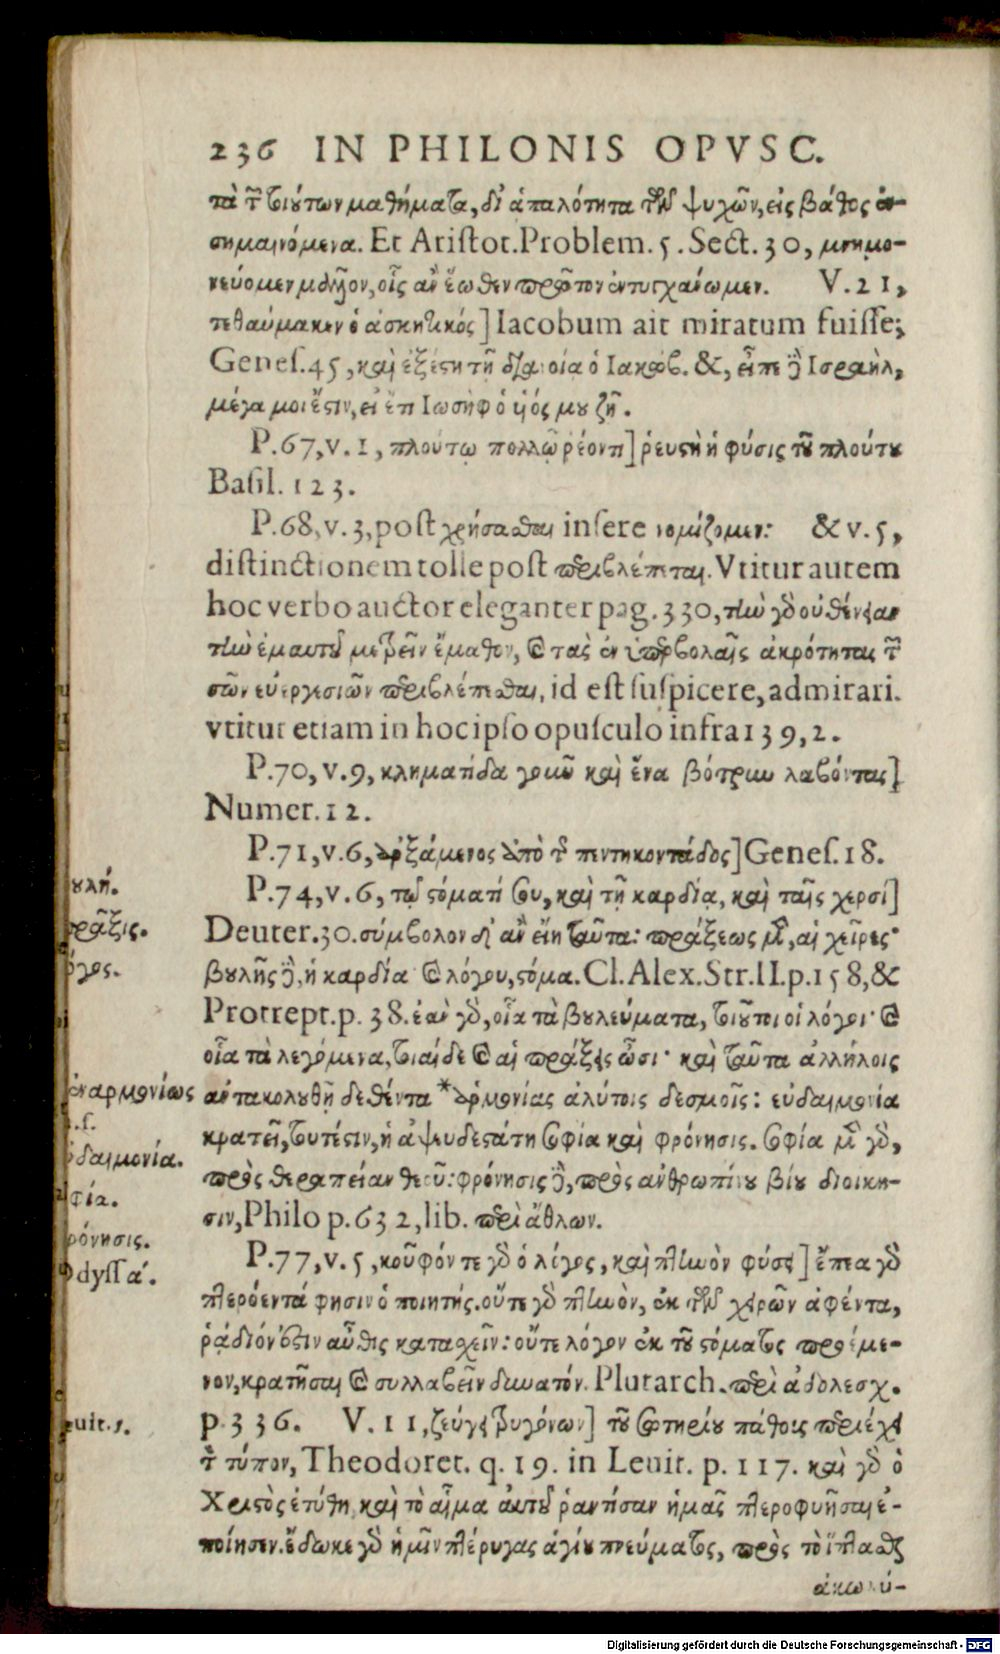 236 IN PHILONIS OPVSC.
τὰ τ̃ τοιούτων μαθήματα, δι' ἁπαλότητα τῶν ψυχῶν, εἰς βάθος ἐν-
σημαινόμενα. Et Aristot. Problem. 5. Sect. 30, μνημο-
νεύομεν μᾶλλον, οἷς ἂν ἕωθεν πρῶτον ἐντυγχάνωμεν. V. 21,
τεθαύμακεν ὁ ἀσκητικός] Iacobum ait miratum fuisse;
Genes. 45, καὶ ἐξέστη τῇ διανοίᾳ ὁ Ιακώβ. &, εἶπε δὲ Ισραὴλ,
μέγα μοι ἔστιν, εἰ ἔτι Ιωσὴφ ὁ υἱός μου ζῇ.
P. 67, v. 1, πλούτῳ πολλῷ ῥέοντι] ῥευστὴ ἡ φύσις τοῦ πλούτου
Basil. 123.
P. 68, v. 3, post χρήσασθαι insere νομίζομεν: & v. 5,
distinctionem tolle post περιβλέπεται. Vtitur autem
hoc verbo auctor eleganter pag. 330, τὴν γὰρ οὐθένειαν
τὴν ἐμαυτοῦ μετρεῖν ἔμαθον, καὶ τὰς ἐν ὑπερβολαῖς ἀκρότητας τ̃
σῶν εὐεργεσιῶν περιβλέπεσθαι, id est suspicere, admirari.
vtitur etiam in hoc ipso opusculo infra 139, 2.
P. 70, v. 9, κληματίδα γοῦν καὶ ἕνα βότρυν λαβόντας]
Numer. 12.
P. 71, v. 6, ἀρξάμενος ἀπὸ τ̃ πεντηκοντάδος] Genes. 18.
P. 74, v. 6, τῷ στόματί σου, καὶ τῇ καρδίᾳ, καὶ ταῖς χερσί]
Deuter. 30. σύμβολον δ' ἂν εἴη ταῦτα: πράξεως μὲν, αἱ χεῖρες·
βουλῆς δὲ, ἡ καρδία· καὶ λόγου, στόμα. Cl. Alex. Str. II. p. 158, &
Protrept. p. 38. ἐὰν γὰρ, οἷα τὰ βουλεύματα, τοιοῦτοι οἱ λόγοι· καὶ
οἷα τὰ λεγόμενα, τοιαίδε καὶ αἱ πράξεις ὦσι· καὶ ταῦτα ἀλλήλοις
ἀντακολουθῇ δεθέντα *ἁρμονίας ἀλύτοις δεσμοῖς: εὐδαιμονία
κρατεῖ, τουτέστιν, ἡ ἀψευδεστάτη σοφία καὶ φρόνησις. σοφία μὲν γὰρ,
πρὸς θεραπείαν θεοῦ: φρόνησις δὲ, πρὸς ἀνθρωπίνου βίου διοίκη-
σιν, Philo p. 632, lib. περὶ ἄθλων.
P. 77, v. 5, κοῦφόν τε γὰρ ὁ λόγος, καὶ πτηνὸν φύσει] ἔπεα γὰρ
πτερόεντά φησιν ὁ ποιητής. οὔτε γὰρ πτηνὸν, ἐκ τῶν χειρῶν ἀφέντα,
ῥᾴδιόν ἐστιν αὖθις κατασχεῖν: οὔτε λόγον ἐκ τοῦ στόματος προέμε-
νον, κρατῆσαι καὶ συλλαβεῖν δυνατόν. Plutarch. περὶ ἀδολεσχ.
p. 336. V. 11, ζεύγει τρυγόνων] τοῦ σωτηρίου πάθους περιέχει
τ̀ τύπον, Theodoret. q. 19. in Leuit. p. 117. καὶ γὰρ ὁ
Χριστὸς ἐτύθη, καὶ τὸ αἷμα αὐτοῦ ῥαντίσαν ἡμᾶς πτεροφυῆσαι ἐ-
ποίησεν. ἔδωκε γὰρ ἡμῖν πτέρυγας ἁγίου πνεύματος, πρὸς τὸ ἵπτασθαι
ἀκωλύ-
ουλή.
ρᾶξις.
όγος.
ἐναρμονίως
.f.
δαιμονία.
φία.
ρόνησις.
Odyss. α'.
euit. 5.
Digitalisierung gefördert durch die Deutsche Forschungsgemeinschaft - DFG